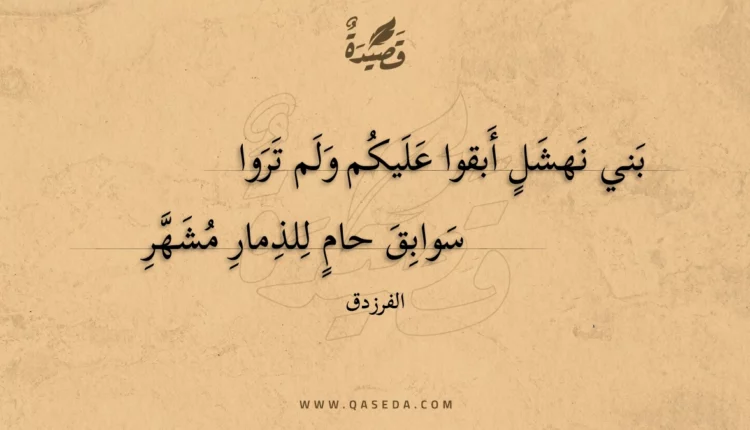 قَصِيْدَةٌ
بَني نَهشَلٍ أَبقوا عَلَيكُم وَلَم تَرَوا
سَوابِقَ حامٍ لِلذِمارِ مُشَهَّرِ
الفرزدق
WWW.QASEDA.COM